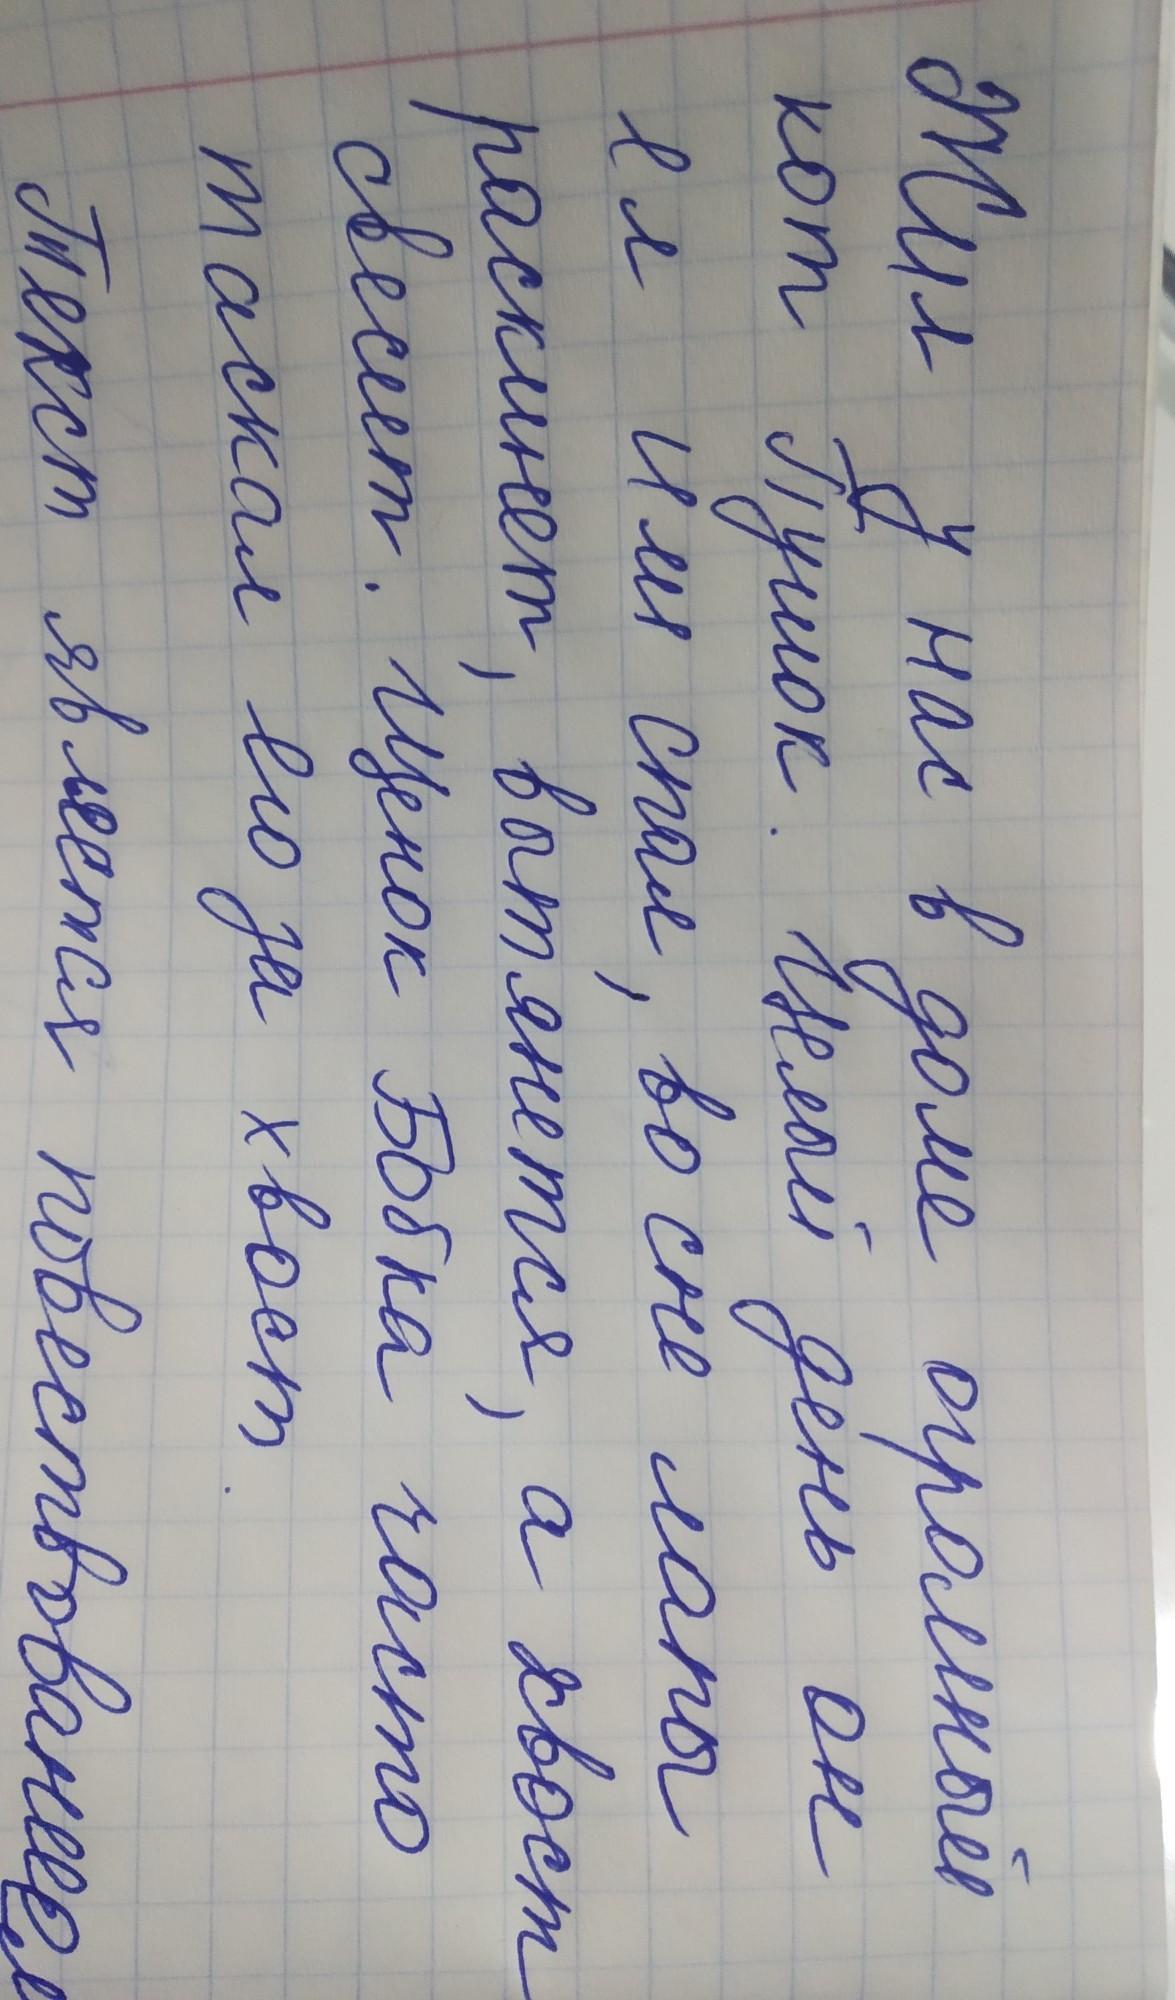 Жил у нас в доме огромный
кот Пушок. Целый день он
ел или спал, во сне лапы
раскинет, вытянется, а хвост
свесит. Щенок Бобка часто
таскал его за хвост.
Текст является повествованием